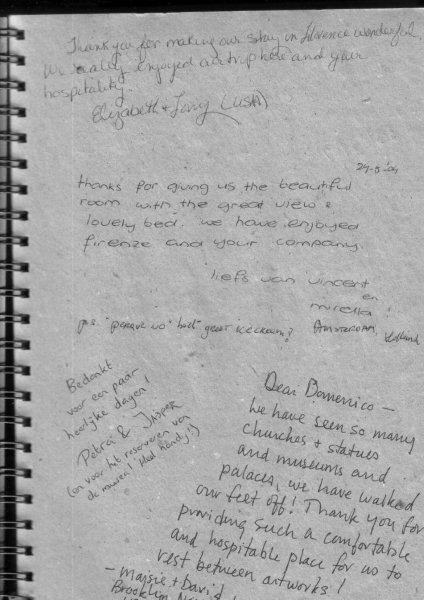 Thank you for making our stay in Florence wonderful.
We really enjoyed our trip here and your
hospitality.
Elizabeth & Terry
29-5-'04
thanks for giving us the beautiful
room with the great view &
lovely bed. we have enjoyed
firenze and your company.
liefs van vincent
en
mirella!
ps. "perque no" has great icecream! Amsterdam, Holland
Bedankt
voor een paar
heerlijke dagen!
Petra & Jasper
(en voor het reserveren van
de musea! Heel handy!)
Dear Domenico —
We have seen so many
churches + statues
and museums and
palaces, we have walked
our feet off! Thank you for
providing such a comfortable
and hospitable place for us to
rest between artworks!
— Maisie + David
Brooklyn